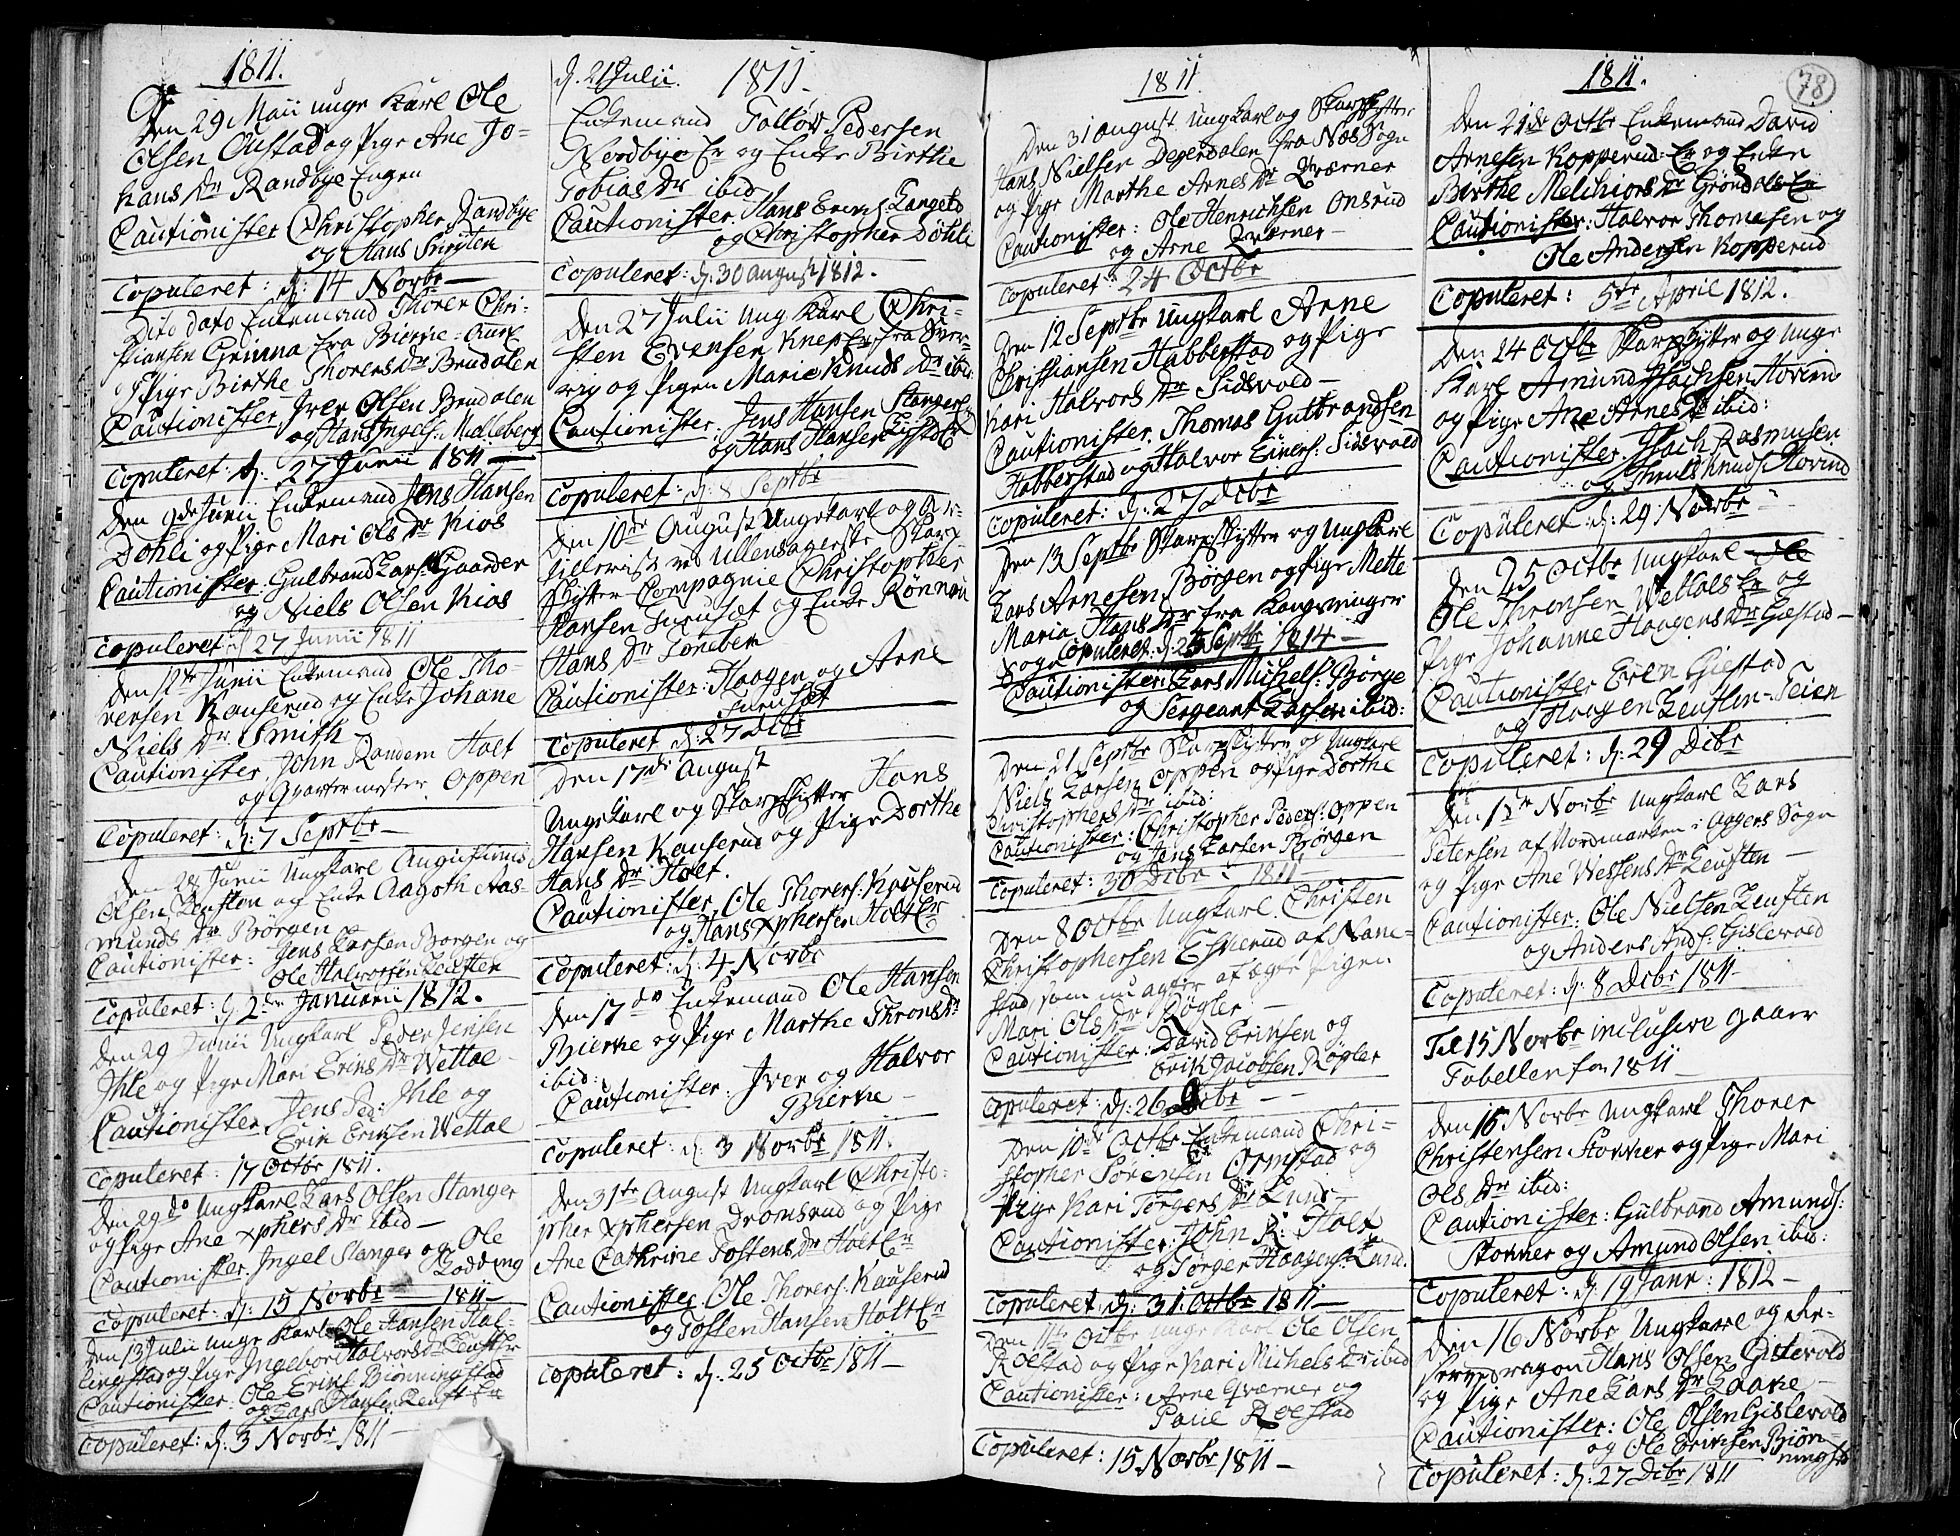 1811.
Den 29 Maii unge Karl Ole
Olsen Onstad og Pige Ane Jo-
hans Dr Randbye Engen
Cautionister Christopher Randbye
og Hans
Copuleret: d: 14 Novbr
Dito Dato Enkemand Thorer Chri-
stiansen Grinna fra Bierke
Pige Birthe Thorers Dr Brudalen
Cautionister Iver Olsen Brudalen
og Hans Ingels: Mekleberg
Copuleret: d: 27 Junii 1811
Den 9de Junii Enkemand Jens Hansen
Dohli og Pige Mari Ols Dr Kios
Cautionister: Gulbrand Lars: Gaarder
og Niels Olsen Kios
Copuleret: d 27 Junii 1811
Den 12te Junii Enkemand Ole Tho-
rersen Kauserud og Enke Johane
Niels Dr Smith
Cautionister. John Randem Holt
og Qvartermester Oppen
Copuleret: d: 7 Septbr
Den 28 Junii Ungkarl Augustinus
Olsen Leusten og Enke Aagoth Aas-
munds Dr Børgen
Cautionister: Jens Larsen Borgen og
Ole Halvorsen Leusten
Copuleret: d: 2de Januarii 1812.
Den 29 Junii Ungkarl Peder Jensen
Ihle og Pige Mari Erics Dr Wettal
Cautionister. Jens Ped: Ihle og
Erik Eriksen Wettal
Copuleret: 17 Octbr 1811.
Den 29de Ungkarl Lars Olsen Stanger
og Pige Ane Xphers Dr ibid
Cautionister. Ingel Stanger og Ole
Rodding
Copuleret: d: 15 Novbr 1811
Den 13 Julii unge Karl Ole Hansen Hal-
lingstad og Pige Ingebor Halvors Dr Leusten
Cautionister: Ole Erics: Biønningstad
og Lars Hansen Leust Er
Copuleret: d: 3 Novbr 1811
d. 21 Julii. 1811.
Enkemand Tollöv Pedersen
Nordbye Er og Enke Birthe
Tobias Dr ibid
Cautionister. Hans Erics: Langeld
og Christopher Döhli
Copuleret: d: 30 August 1812.
Den 27 Julii Ung Karl Chri-
sten Evensen Knep Er fra Sør-
rig og Pigen Marie Knuds Dr ibid
Cautionister. Jens Hansen Stanger
og Hans Hansen
Copuleret: d: 8 Septbr
Den 10de August Ungekarl og Ar-
tillerist ved Ullensagerske Skarp
Skytter Compagnie Christopher
Hansen Furuset og Enke Rönnau
Hans Dr
Cautionister: Haagen og Arne
Furuset
Copuleret d: 27 Dcbr
Den 17de August
Ungekarl og Skarpskytter Hans
Hansen Kauserud og Pige Dorthe
Hans Dr Holt.
Cautionister, Ole Thorers: Kauserud
og Hans Xphersen Holt Er
Copuleret: d: 4 Novbr
Den 17de Enkemand Ole Hansen
Bierke og Pige Marthe Throns Dr
ibid:
Cautionister. Iver og Halvor
Bierke
Copuleret: d: 3 Novbr 1811.
Den 31te August Ungkarl Christo-
pher Xphersen Dromsrud og Pige
Ane Cathrine Tostens Dr Holt Er
Cautionister Ole Thorers: Kauserud
og Tosten Hansen Holt Er
Copuleret: d: 25 Octbr 1811
1811
Den 31 August Ungkarl og Skarpskytter
Hans Nielsen Degerdalen fra Næs Sogn
og Pige Marthe Arnes Dr Qværner
Cautionister: Ole Henrichsen Onsrud
og Arne Qværner
Copuleret: 24 Octbr
Den 12 Septbr Ungkarl Arne
Christiansen Habberstad og Pige
Kari Halvors Dr Sidsvold
Cautionister. Thomas Gulbrandsen
Habberstad og Halvor Einers: Sidsvold
Copuleret: d: 27 Dcbr
Den 13 Septbr Skarpskytter og Ungkarl
Lars Arnesen Børgen og Pige Mette
Maria Hans Dr fra Kongsvinger
Sogn Copuleret: d: 25 Septbr 1814
Cautionister: Lars Michels: Børge
og Sergeant Larsen ibid:
Den 21 Septbr Skarpskytter og Ungkarl
Niels Larsen Oppen og Pige Dorthe
Christophers Dr ibid:
Cautionister: Christopher Peders: Oppen
og Jens Larsen Børgen
Copuleret: 30 Dcbr: 1811
Den 8 Octbr Ungkarl Christen
Christophersen Eskerud af Nane-
stad som nu agter at ægte Pigen
Mari Ols Dr Røgler
Cautionister: David Ericksen og
Erik Jacobsen Røgler
Copuleret: d: 26 Dcbr
Den 10de Octbr Enkemand Chri-
stopher Sørensen Ormstad og
Pige Kari Torgers Dr Lund
Cautionister: John R: Holt
og Torger Haagens: Lund.
Copuleret d: 31. Octbr 1811
Den 11te Octbr unge Karl Ole Olsen
Roestad og Pige Kari Michels Dr ibid
Cautionister: Arne Qværner og
Paul Roestad
Copuleret: 15 Novbr 1811
78
1811.
Den 21de Octbr Enkemand David
Arnesen Kopperud: Er og Enken
Birthe Melchiors Dr Gröndals Er
Cautionister: Halvor Thomesen og
Ole Andersen Kopperud
Copuleret: 5te April 1812.
Den 24 Octbr Skarpskytter og Unge
Karl Amund Isachsen Hovind
og Pige Ane Arnes Dr ibid:
Cautionister. Isach Rasmusen
og Knuds: Hovind
Copuleret: d: 29 Novbr
Den 25 Octbr Ungkarl Ole
Ole Thronsen Wettals Er og
Pige Johanne Haagens Dr Giestad
Cautionister Even Giestad
og Haagen Leusten
Copuleret: d: 29 Dcbr
Den 12te Novbr Ungkarl Lars
Petersen af Nordmarken i Aggers Sogn
og Pige Ane Wessens Dr Leusten
Cautionister: Ole Nielsen Leusten
og Anders Ands: Gislevold
Copuleret: d: 8 Dcbr 1811
Til 15 Novbr inclusive gaaer
Tabellen for 1811
Den 16 Novbr Ungkarl Thorer
Christensen Stokker og Pige Mari
Ols Dr ibid:
Cautionister: Gulbrand Amunds:
Stokker og Amund Olsen ibid:
Copuleret: d 19 Janr: 1812
Den 16 Novbr Ungkarl og Re-
servedragon Hans Olsen Gislevold
og Pige Ane Lars Dr Laake
Cautionister: Ole Olsen Gislevold
og Ole Ericksen Biøn-
ningstad
Copuleret: d: 27 Dcbr 1811